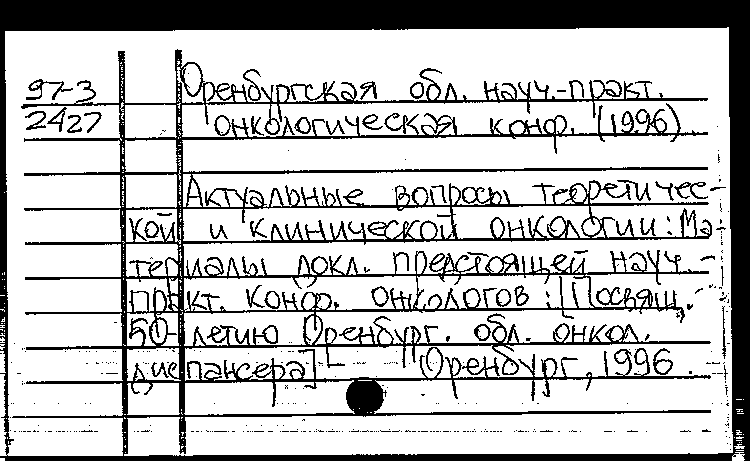 97-3 Оренбургская обл. науч.-практ.
2427 онкологическая конф. (1996)
Актуальные вопросы теоретичес-
кой и клинической онкологии: Ма-
териалы докл. предстоящей науч.-
практ. конф. онкологов: [Посвящ.
50-летию Оренбург. обл. онкол.
диспансера] - Оренбург, 1996.